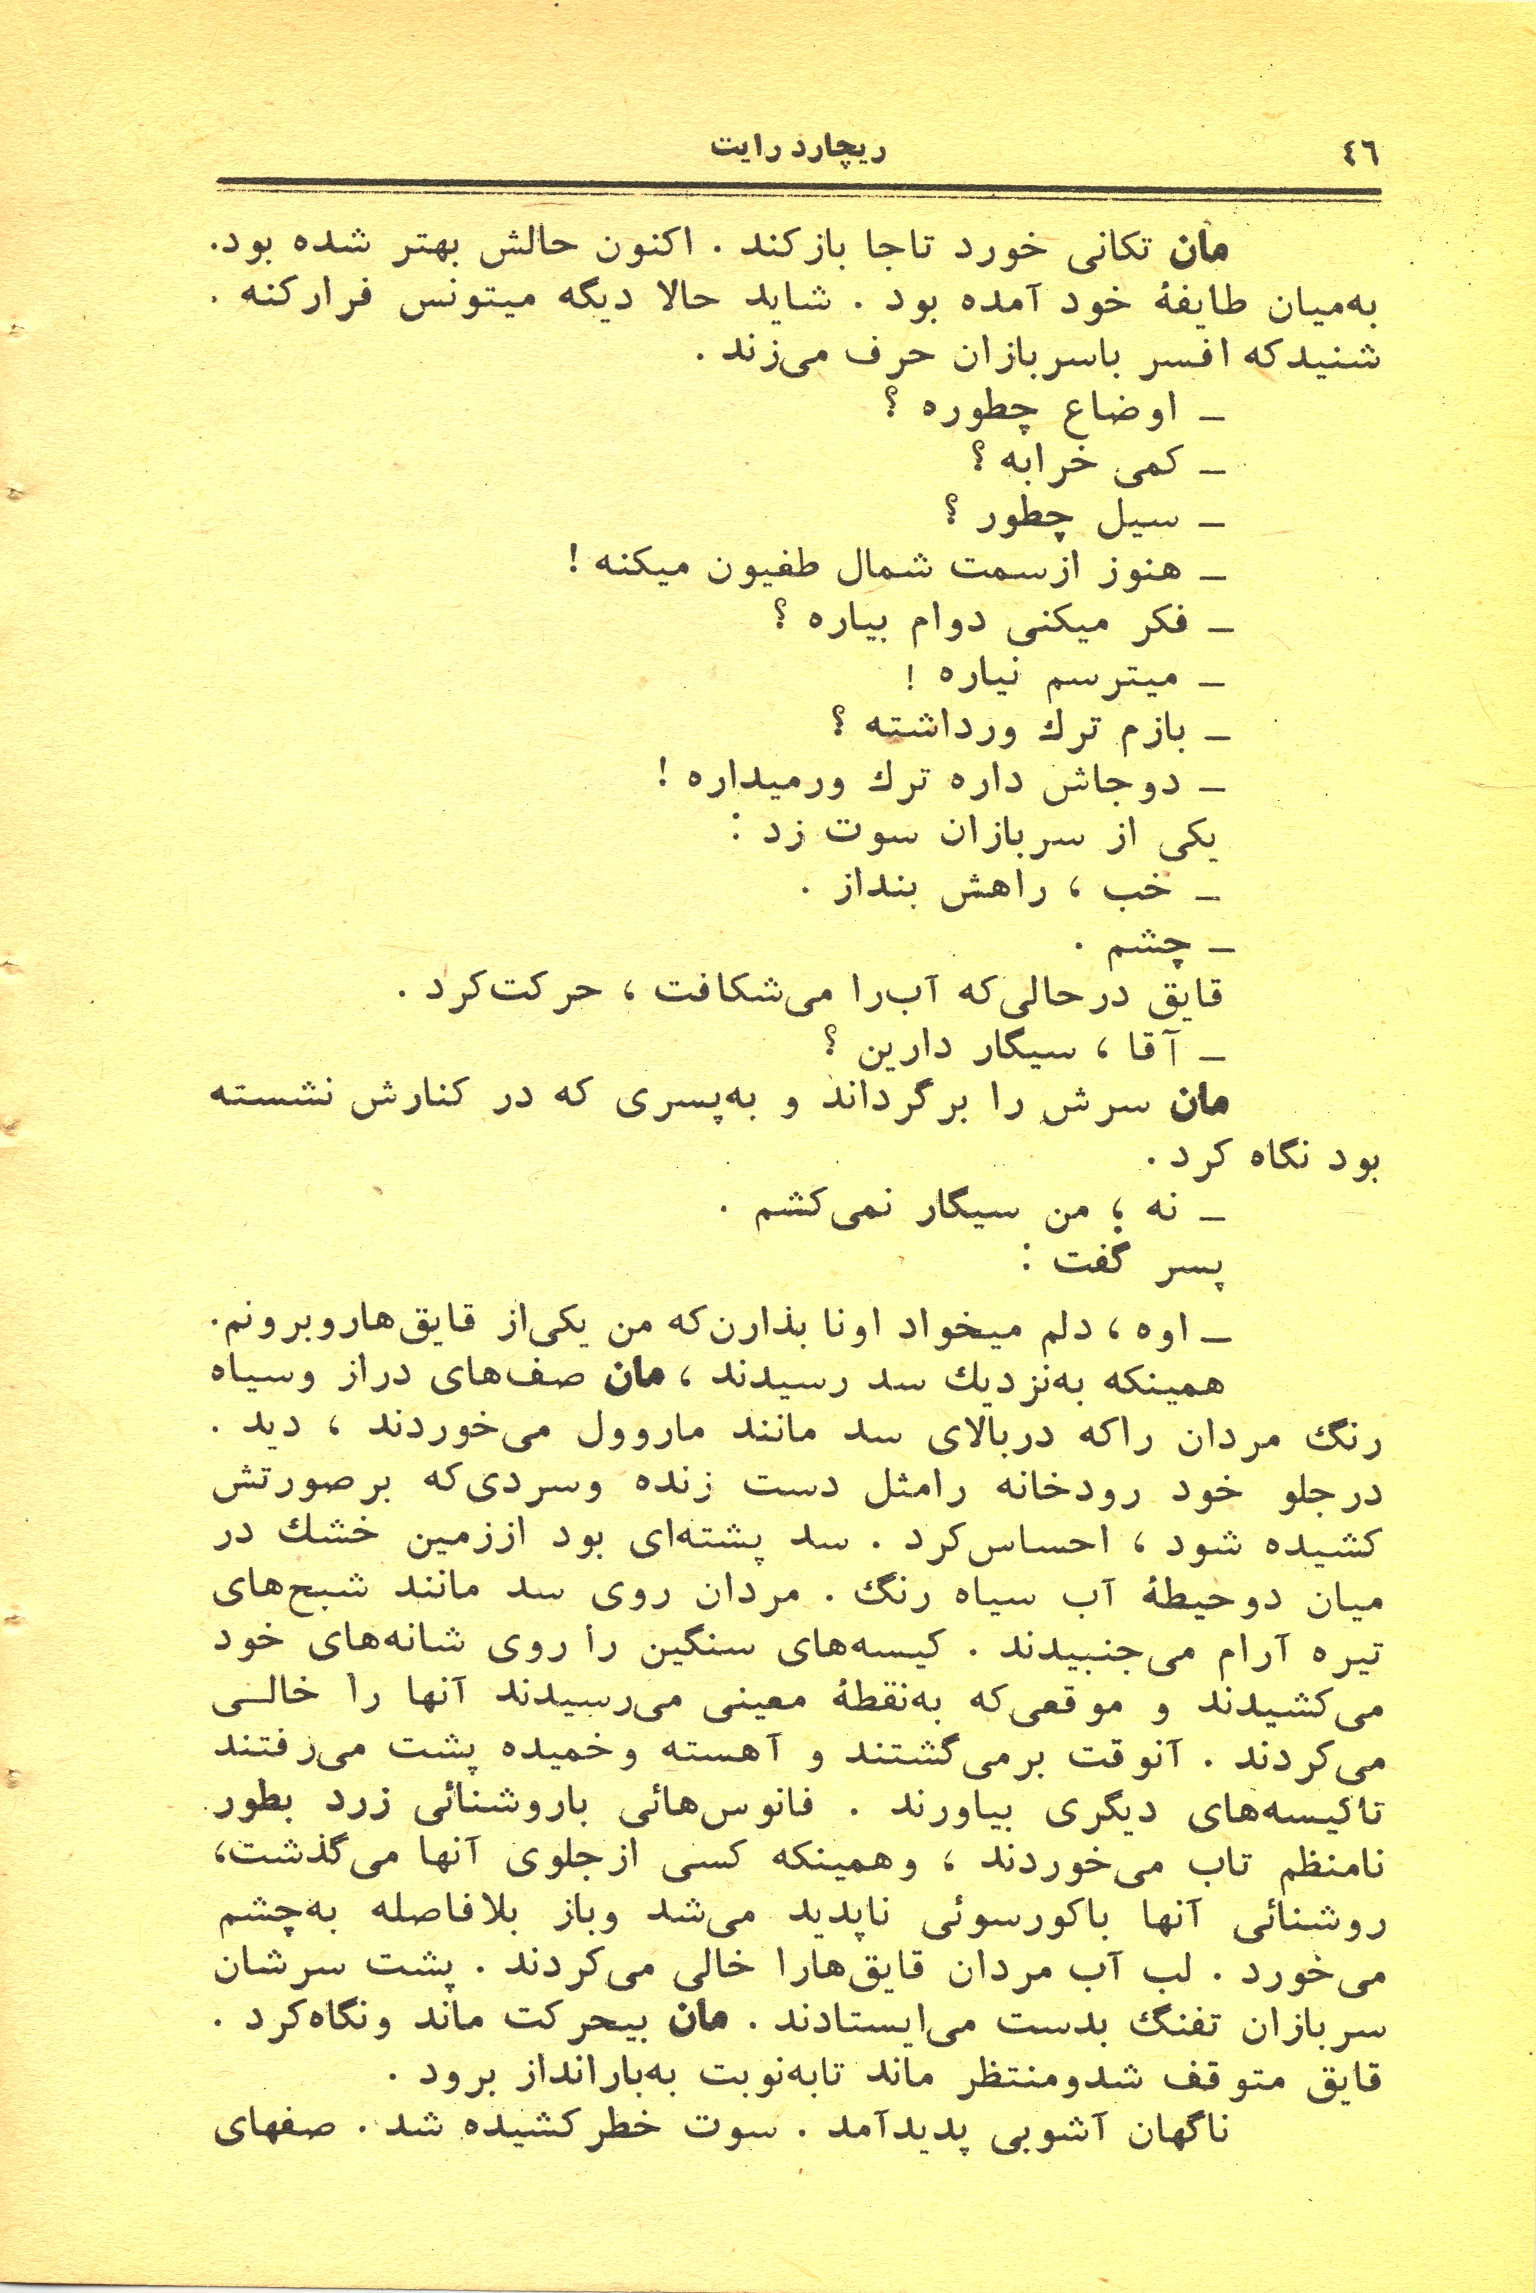 ٤٦
ریچارد رایت
مان تکانی خورد تاجا بازکند . اکنون حالش بهتر شده بود.
به‌میان طایفهٔ خود آمده بود . شاید حالا دیگه میتونس فرارکنه .
شنیدکه افسر باسربازان حرف می‌زند .
ـ اوضاع چطوره ؟
ـ کمی خرابه ؟
ـ سیل چطور ؟
ـ هنوز ازسمت شمال طغیون میکنه !
ـ فکر میکنی دوام بیاره ؟
ـ میترسم نیاره !
ـ بازم ترك ورداشته ؟
ـ دوجاش داره ترك ورمیداره !
یکی از سربازان سوت زد :
ـ خب ، راهش بنداز .
ـ چشم .
قایق درحالی‌که آب‌را می‌شکافت ، حرکت‌کرد .
ـ آقا ، سیگار دارین ؟
مان سرش را برگرداند و به‌پسری که در کنارش نشسته
بود نگاه کرد .
ـ نه ؛ من سیگار نمی‌کشم .
پسر گفت :
ـ اوه ، دلم میخواد اونا بذارن‌که من یکی‌از قایق‌هاروبرونم.
همینکه به‌نزدیك سد رسیدند ، مان صف‌های دراز وسیاه
رنگ مردان راکه دربالای سد مانند ماروول می‌خوردند ، دید .
درجلو خود رودخانه رامثل دست زنده وسردی‌که برصورتش
کشیده شود ، احساس‌کرد . سد پشته‌ای بود اززمین خشك در
میان دوحیطهٔ آب سیاه رنگ . مردان روی سد مانند شبح‌های
تیره آرام می‌جنبیدند . کیسه‌های سنگین را روی شانه‌های خود
می‌کشیدند و موقعی‌که به‌نقطهٔ معینی می‌رسیدند آنها را خالـی
می‌کردند . آنوقت برمی‌گشتند و آهسته وخمیده پشت می‌رفتند
تاکیسه‌های دیگری بیاورند . فانوس‌هائی باروشنائی زرد بطور
نامنظم تاب می‌خوردند ، وهمینکه کسی ازجلوی آنها می‌گذشت،
روشنائی آنها باکورسوئی ناپدید می‌شد وباز بلافاصله به‌چشم
می‌خورد . لب آب مردان قایق‌هارا خالی می‌کردند . پشت سرشان
سربازان تفنگ بدست می‌ایستادند . مان بیحرکت ماند ونگاه‌کرد .
قایق متوقف شدومنتظر ماند تابه‌نوبت به‌بارانداز برود .
ناگهان آشوبی پدیدآمد . سوت خطرکشیده شد . صفهای